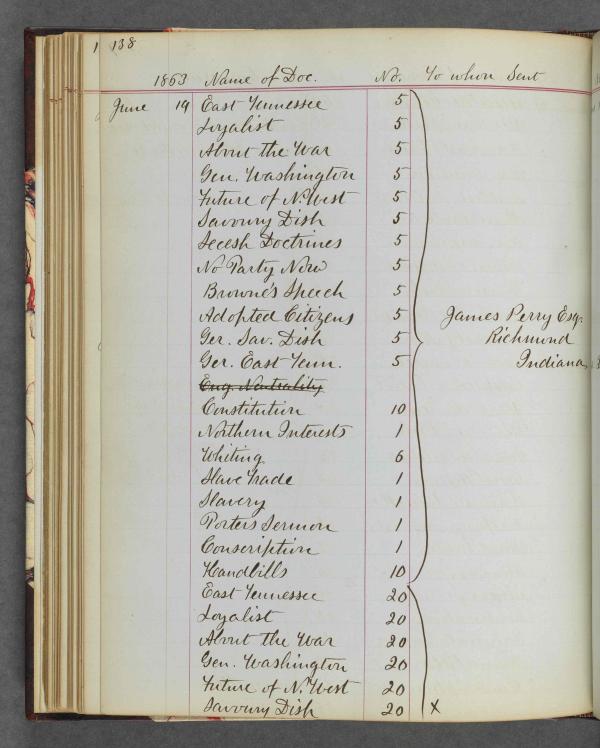 138
1863 Name of Doc. No. To whom Sent
June 19 East Tennessee 5
Loyalist 5
About the War 5
Gen. Washington 5
Future of N. West 5
Savoury Dish 5
Secesh Doctrines 5
No Party Now 5
Browne's Speech 5
Adopted Citizens 5 James Perry Esq.
Ger. Sav. Dish 5 Richmond
Ger. East Tenn. 5 Indiana
Eng. Neutrality
Constitution 10
Northern Interests 1
Whiting 6
Slave Trade 1
Slavery 1
Porters Sermon 1
Conscription 1
Handbills 10
East Tennessee 20
Loyalist 20
About the War 20
Gen. Washington 20
Future of N. West 20
Savoury Dish 20 X